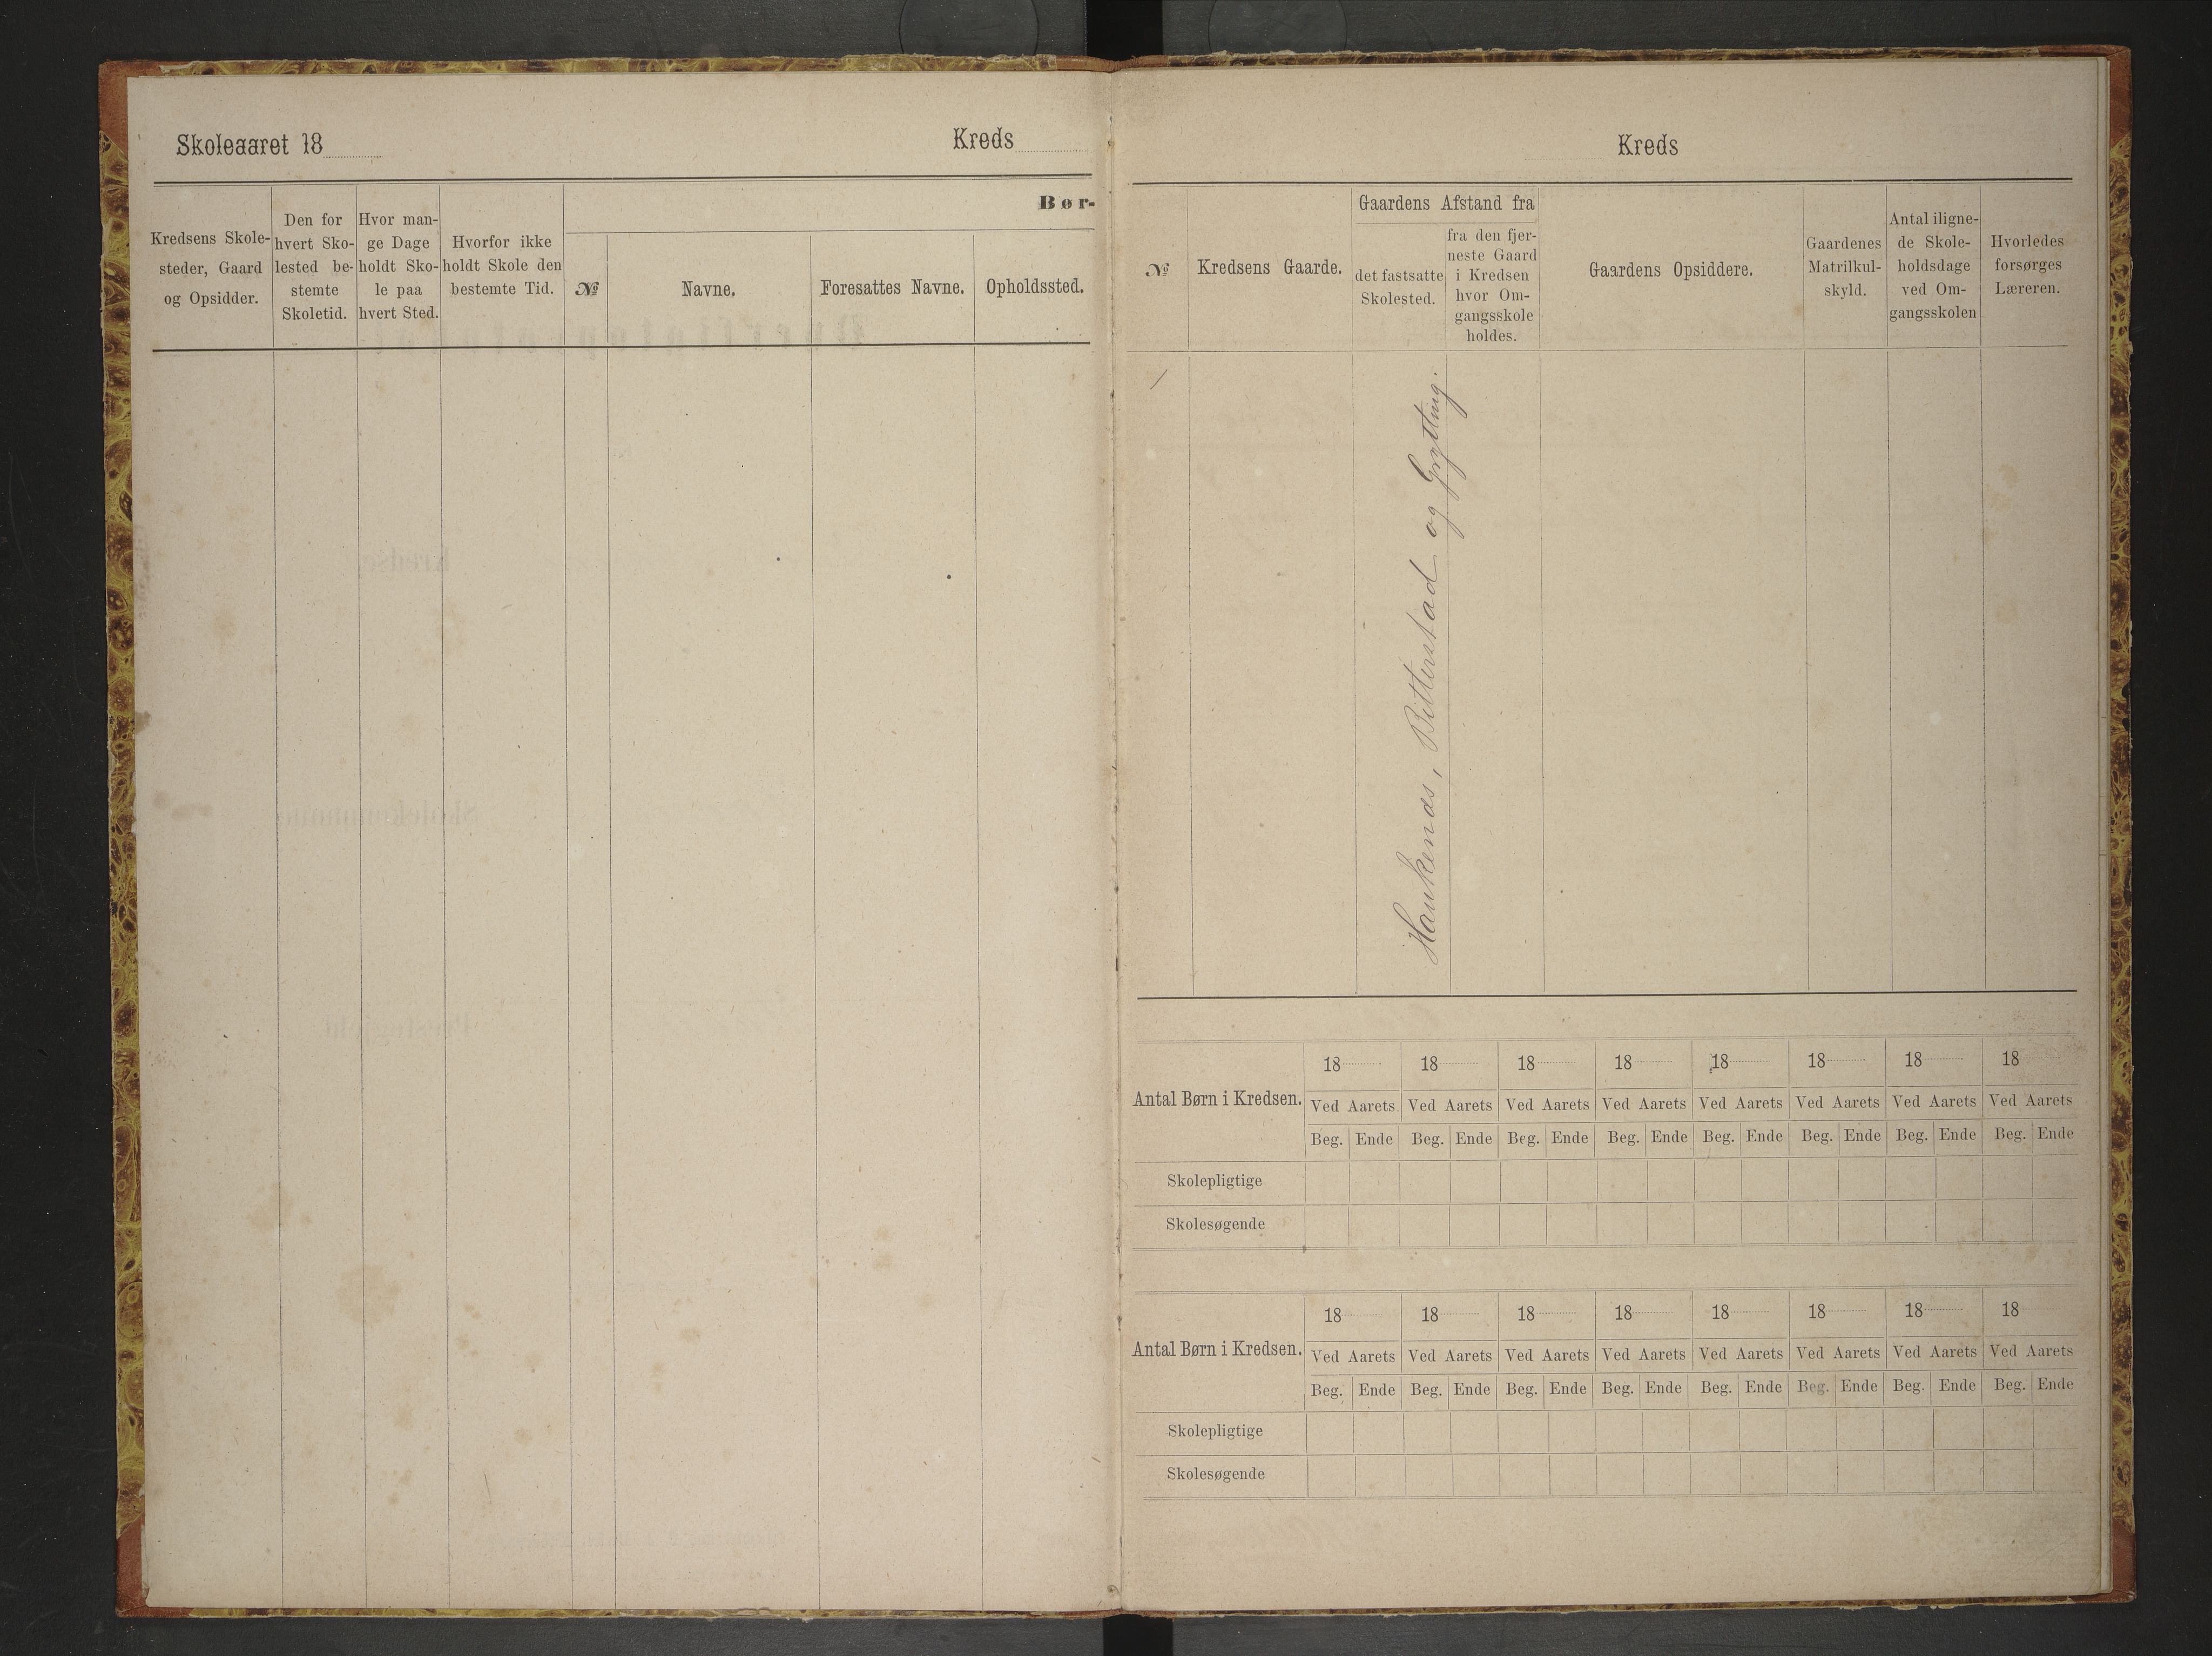 Skoleaaret 18
Kreds
Kredsens Skole-
steder, Gaard
og Opsidder.
Den for
hvert Sko-
lested be-
stemte
Skoletid.
Hvor man-
ge Dage
holdt Sko-
le paa
hvert Sted.
Hvorfor ikke
holdt Skole den
bestemte Tid.
Bør-
№
Navne.
Foresattes Navne.
Opholdssted.
Kreds
№
Kredsens Gaarde.
Gaardens Afstand fra
det fastsatte
Skolested.
fra den fjer-
neste Gaard
i Kredsen
hvor Om-
gangsskole
holdes.
Gaardens Opsiddere.
Gaardenes
Matrilkul-
skyld.
Antal iligne-
de Skole-
holdsdage
ved Om-
gangsskolen
Hvorledes
forsørges
Læreren.
Haukenæs, Bitterstad og Grytting.
Antal Børn i Kredsen.
18 18 18 18 18 18 18 18
Ved Aarets Ved Aarets Ved Aarets Ved Aarets Ved Aarets Ved Aarets Ved Aarets Ved Aarets
Beg. Ende Beg. Ende Beg. Ende Beg. Ende Beg. Ende Beg. Ende Beg. Ende Beg. Ende
Skolepligtige
Skolesøgende
Antal Børn i Kredsen.
18 18 18 18 18 18 18 18
Ved Aarets Ved Aarets Ved Aarets Ved Aarets Ved Aarets Ved Aarets Ved Aarets Ved Aarets
Beg. Ende Beg. Ende Beg. Ende Beg. Ende Beg. Ende Beg. Ende Beg. Ende Beg. Ende
Skolepligtige
Skolesøgende